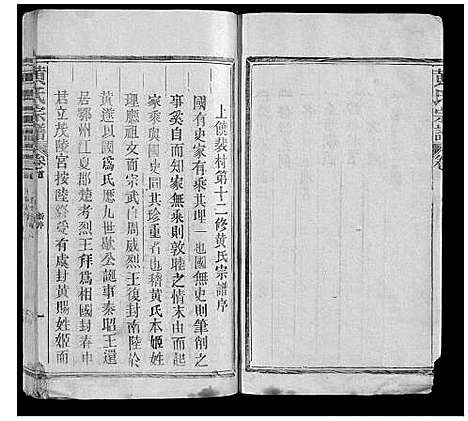 黃氏宗譜 卷
上饒裴村第十二修黃氏宗譜序
國有史家有乘其理一也國無史則筆削之
事奚自而知家無乘則敦睦之情末由而起
家乘與國史同其珍重者也稽黃氏本姬姓
理應祖文而宗武自周威烈王復封南陸於
黃遂以國爲氏歷九世歇公誕事秦昭王還
居鄂州江夏郡楚考烈王拜爲相國封春申
君立茂陵宮按陸終受有虞封黃賜姓姬而
黃氏宗譜 卷首